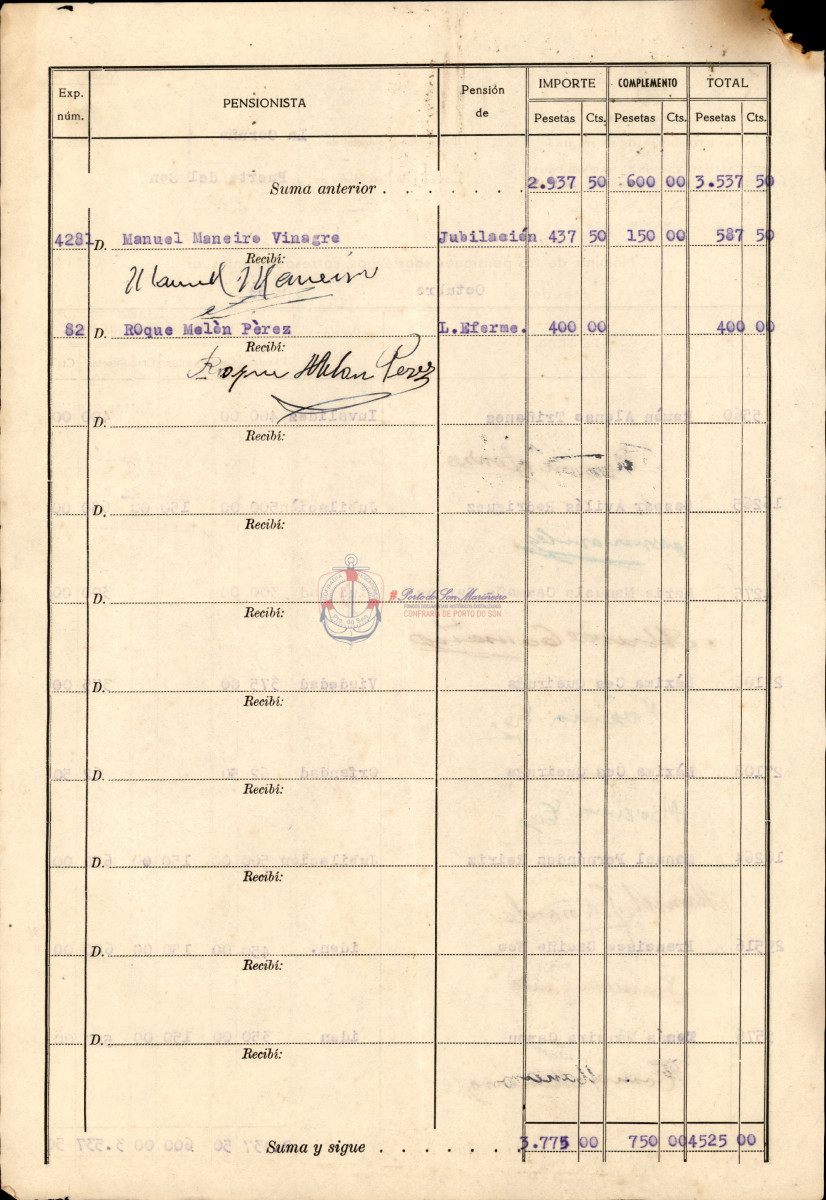 Exp. núm. PENSIONISTA Pensión de IMPORTE COMPLEMENTO TOTAL
Pesetas Cts. Pesetas Cts. Pesetas Cts.
Suma anterior . . . . . . . 2.937 50 600 00 3.537 50
4281 D. Manuel Maneiro Vinagre Jubilación 437 50 150 00 587 50
Recibí:
Manuel Maneiro
82 D. ROque Melèn Pèrez L.Eferme. 400 00 400 00
Recibí:
Roque Melon Perez
D.
Recibí:
D.
Recibí:
D.
Recibí:
#Porto do Son Mariñeiro
FONDOS DOCUMENTAIS HISTÓRICOS DIXITALIZADOS
CONFRARÍA DE PORTO DO SON
D.
Recibí:
D.
Recibí:
D.
Recibí:
D.
Recibí:
D.
Recibí:
Suma y sigue . . . . . . . 3.775 00 750 00 4525 00